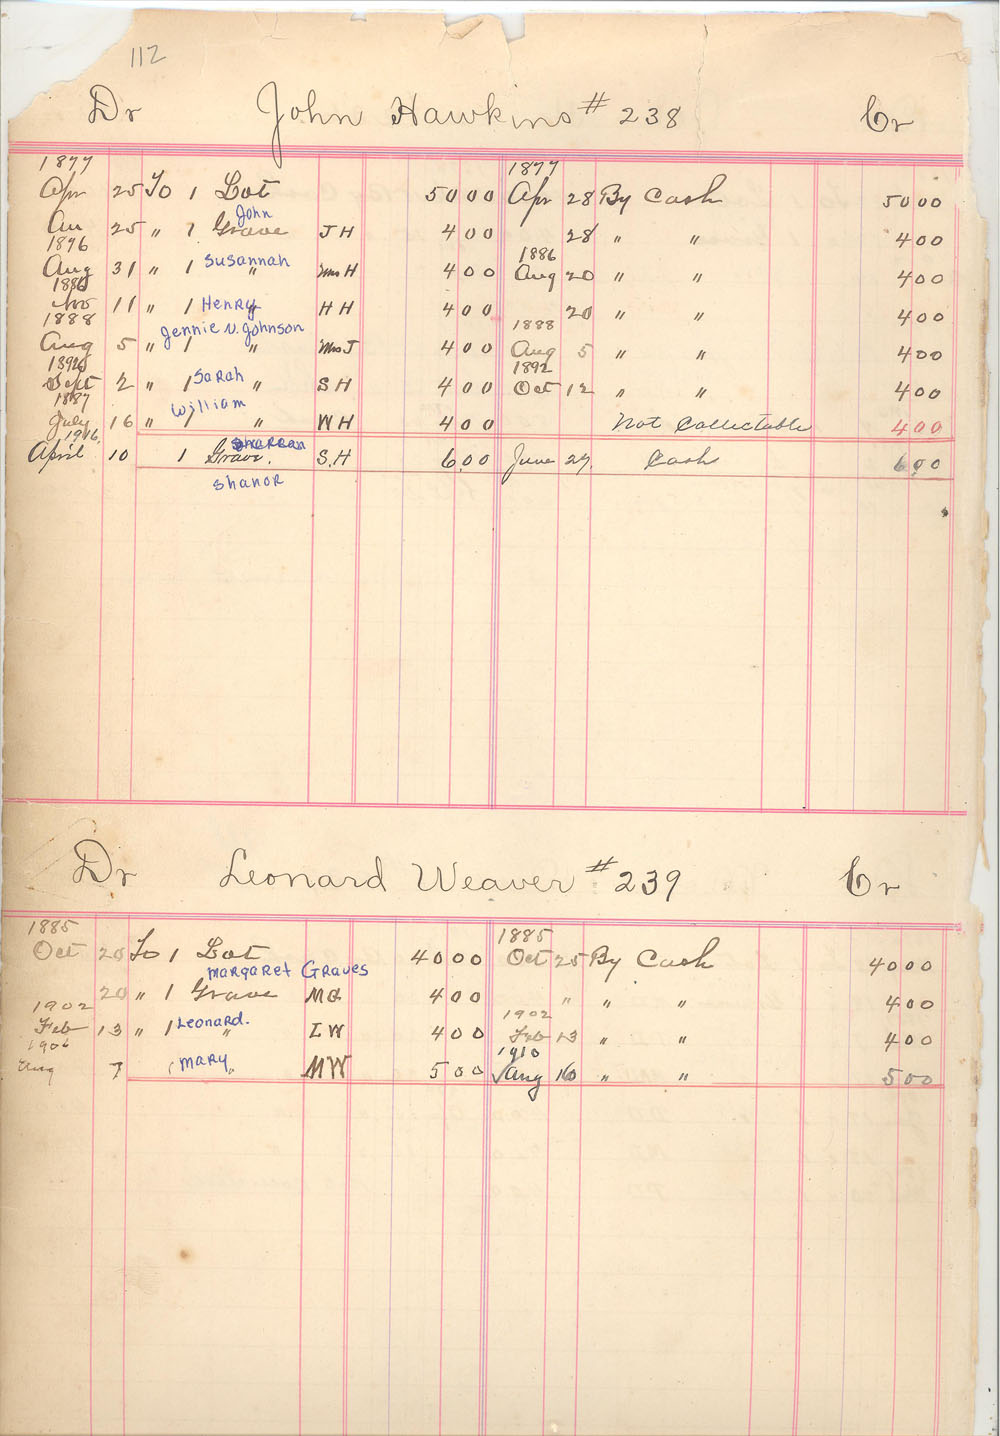 112
Dr John Hawkins # 238 Cr
1877 1877
Apr 25 To 1 Lot 50 00 Apr 28 By Cash 50 00
John
25 " 1 Grave J H 4 00 28 " " 4 00
1876 1886
Aug 31 " 1 Susannah " Mrs H 4 00 Aug 20 " " 4 00
1886
Nov 11 " 1 Henry " H H 4 00 20 " " 4 00
1888 Jennie V. Johnson 1888
Aug 5 " 1 " Mrs J 4 00 Aug 5 " " 4 00
1892 1892
Sept 2 " 1 Sarah " S H 4 00 Oct 12 " " 4 00
1887 William
July 16 " 1 " W H 4 00 Not Collectable 4 00
1916
April 10 1 Grave. S. H 6 00 June 27. Cash 6 00
Shanor
Dr Leonard Weaver # 239 Cr
1885 1885
Oct 20 To 1 Lot 40 00 Oct 25 By Cash 40 00
Margaret Graves
20 " 1 Grave M G 4 00 " " " 4 00
1902 1902
Feb 13 " 1 Leonard. " L W 4 00 Feb 13 " " 4 00
1906 1910
Aug 7 1 Mary " M W 5 00 √ Aug 10 " " 5 00